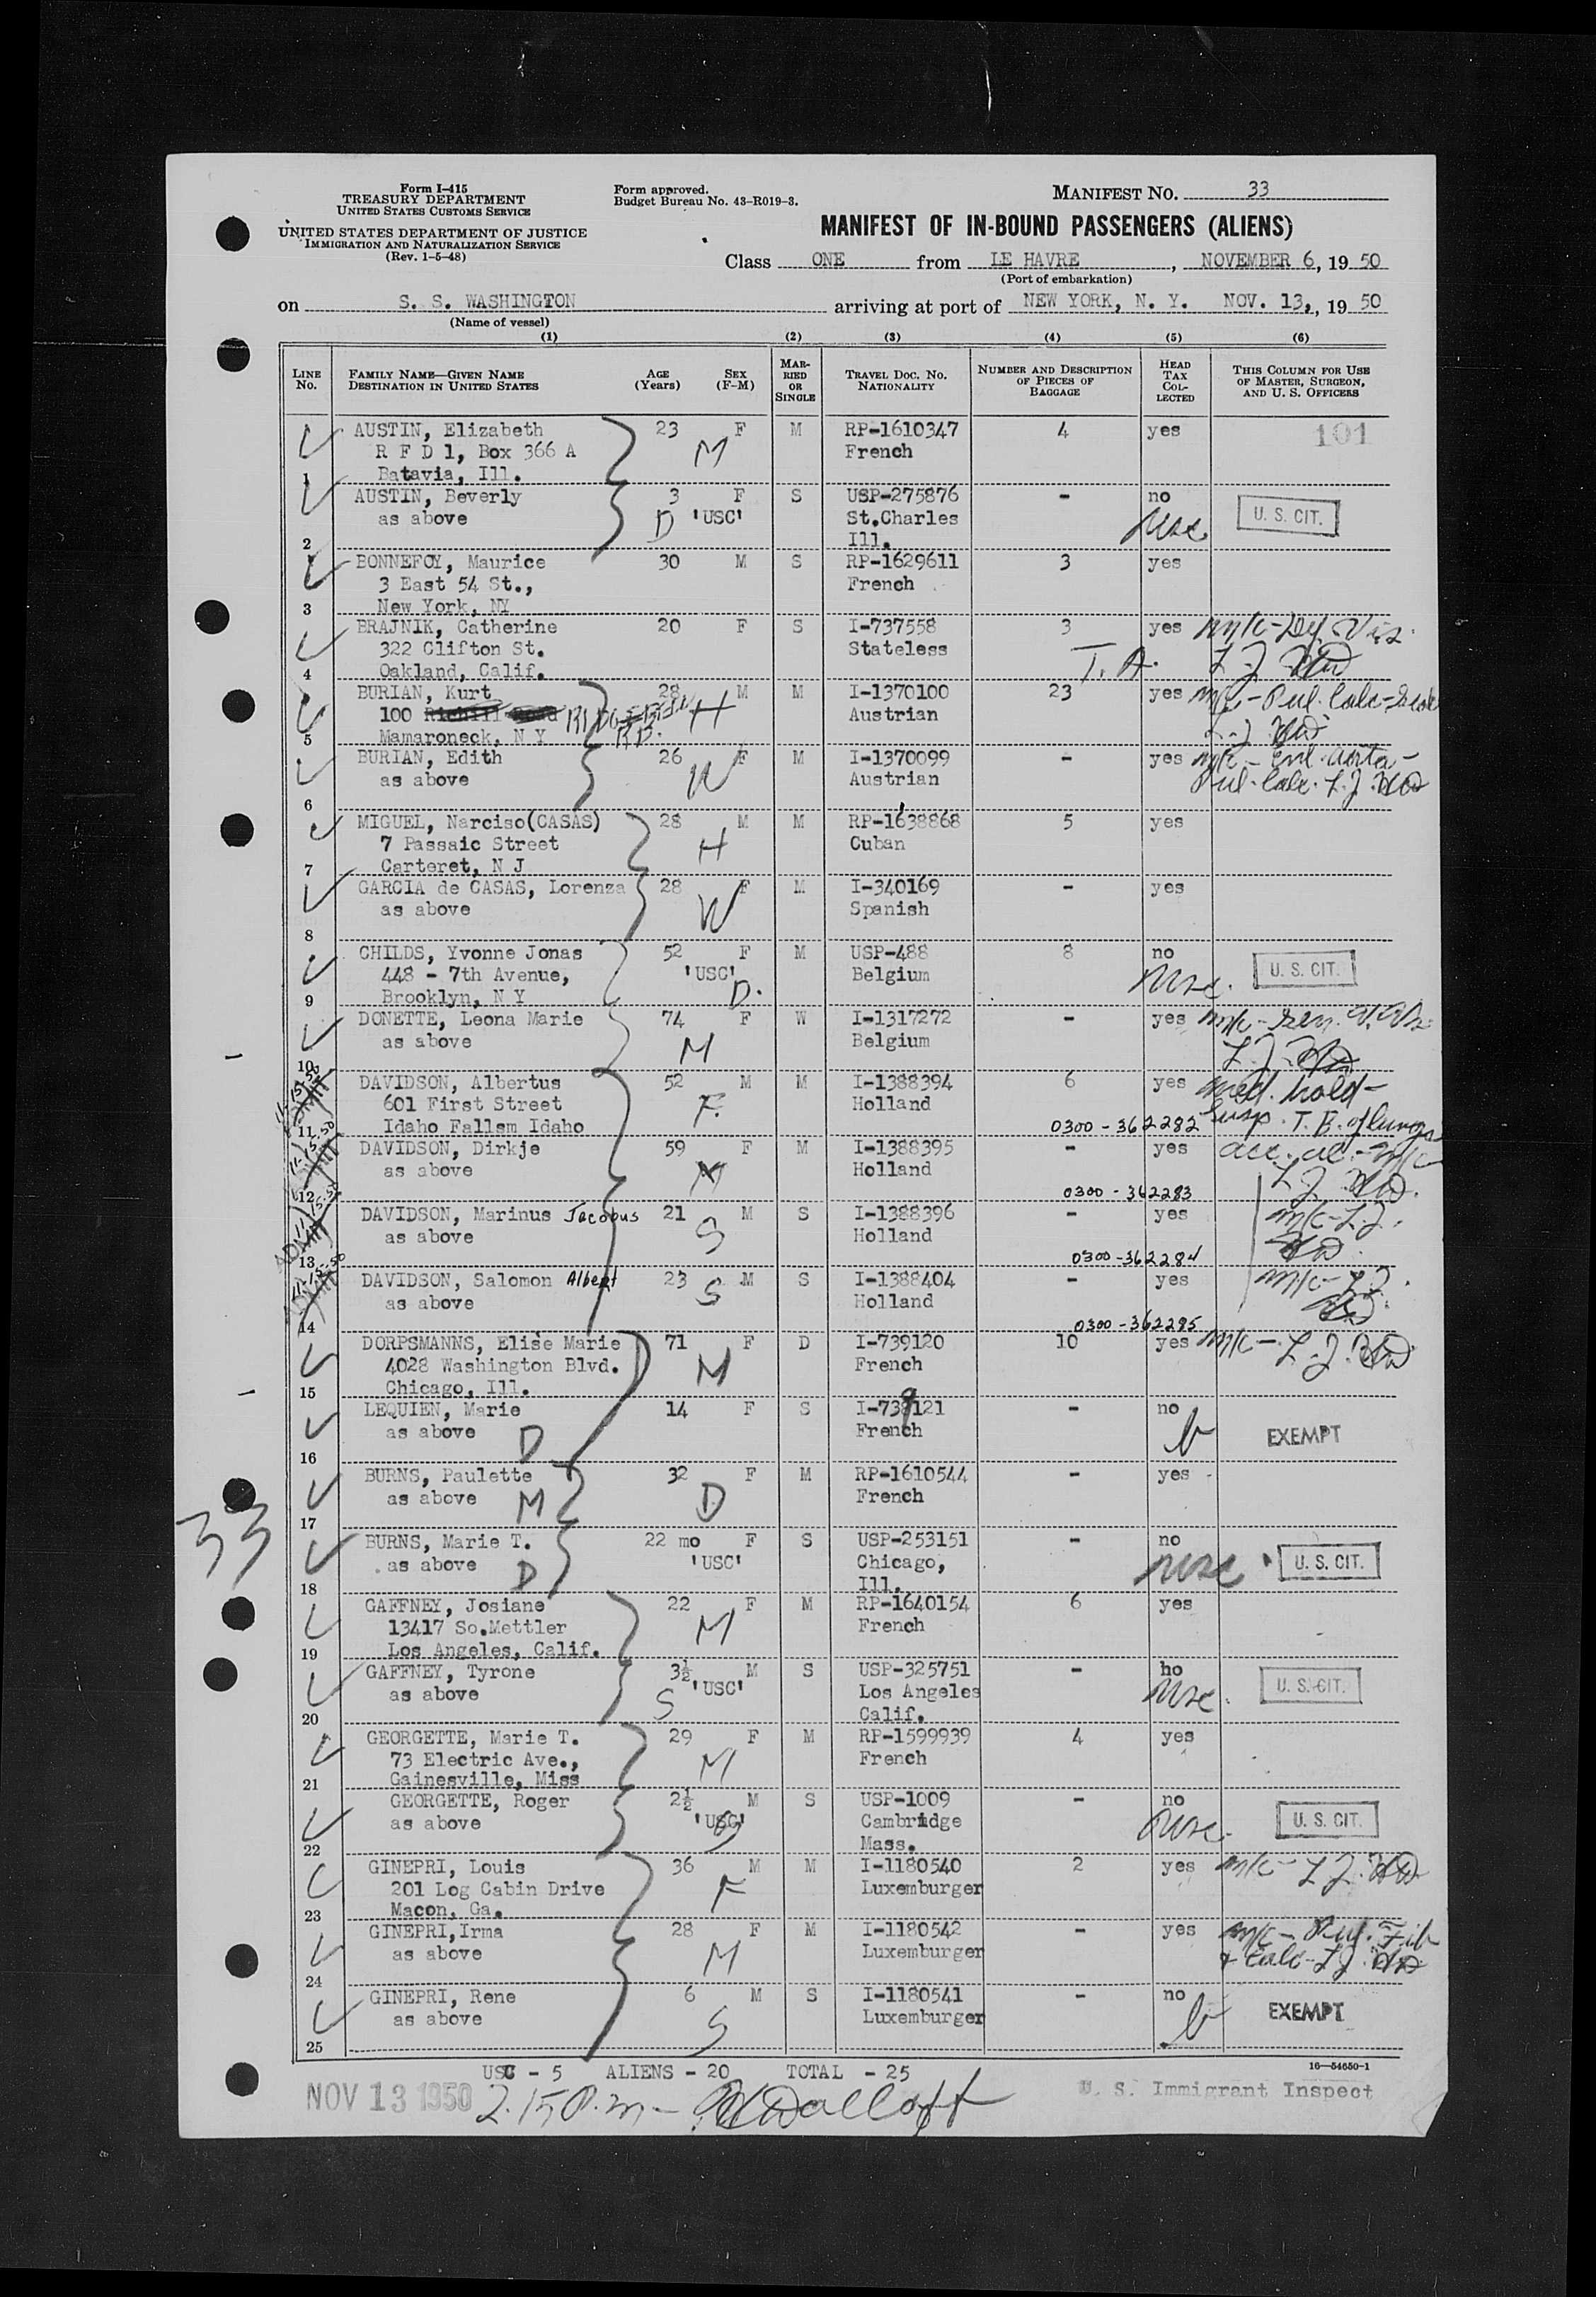 Form I-415
TREASURY DEPARTMENT
UNITED STATES CUSTOMS SERVICE
UNITED STATES DEPARTMENT OF JUSTICE
IMMIGRATION AND NATURALIZATION SERVICE
(Rev. 1-5-48)
Form approved.
Budget Bureau No. 43-R019-3.
MANIFEST NO. 33
MANIFEST OF IN-BOUND PASSENGERS (ALIENS)
Class ONE from LE HAVRE, NOVEMBER 6, 19 50
(Port of embarkation)
on S. S. WASHINGTON arriving at port of NEW YORK, N. Y. NOV. 13,, 19 50
(Name of vessel)
(1) (2) (3) (4) (5) (6)
LINE No. FAMILY NAME—GIVEN NAME DESTINATION IN UNITED STATES AGE (Years) SEX (F-M) MARRIED OR SINGLE TRAVEL DOC. NO. NATIONALITY NUMBER AND DESCRIPTION OF PIECES OF BAGGAGE HEAD TAX COLLECTED THIS COLUMN FOR USE OF MASTER, SURGEON, AND U. S. OFFICERS
AUSTIN, Elizabeth 23 F M RP-1610347 4 yes 101
R F D 1, Box 366 A M French
1 Batavia, Ill.
AUSTIN, Beverly 3 F S USP-275876 - no
as above D 'USC' St.Charles usc U. S. CIT.
2 Ill.
BONNEFOY, Maurice 30 M S RP-1629611 3 yes
3 East 54 St., French
3 New York, NY
BRAJNIK, Catherine 20 F S I-737558 3 yes m/c-Def. Vis.
322 Clifton St. Stateless T. A. L. J.
4 Oakland, Calif.
BURIAN, Kurt 28 M M I-1370100 23 yes m/c-Pul. Calc-
100 H Austrian
5 Mamaroneck, N Y RD. L. J.
BURIAN, Edith 26 F M I-1370099 - yes m/c-Enl. aorta-
as above W Austrian Pul. Calc. L. J.
6
MIGUEL, Narciso(CASAS) 28 M M RP-1638868 5 yes
7 Passaic Street H Cuban
7 Carteret, N J
GARCIA de CASAS, Lorenza 28 F M I-340169 - yes
as above W Spanish
8
CHILDS, Yvonne Jonas 52 F M USP-488 8 no
448 - 7th Avenue, 'USC' Belgium usc. U. S. CIT.
9 Brooklyn, N Y D.
DONETTE, Leona Marie 74 F W I-1317272 - yes m/c-
as above M Belgium L. J.
10
DAVIDSON, Albertus 52 M M I-1388394 6 yes med. hold-
601 First Street F. Holland Susp. T. B. of lungs
11 Idaho Fallsm Idaho 0300-362282
DAVIDSON, Dirkje 59 F M I-1388395 - yes acc. al.-m/c
as above M Holland L J
12 0300-362283
DAVIDSON, Marinus Jacobus 21 M S I-1388396 - yes m/c-L.J.
as above S Holland
13 0300-362284
DAVIDSON, Salomon Albert 23 M S I-1388404 - yes m/c-L J.
as above S Holland
14 0300-362285
DORPSMANNS, Elise Marie 71 F D I-739120 10 yes m/c-L. J.
4028 Washington Blvd. M French
15 Chicago, Ill.
LEQUIEN, Marie 14 F S I-739121 - no
as above D French EXEMPT
16
BURNS, Paulette 32 F M RP-1610544 - yes
as above M D French
17
BURNS, Marie T. 22 mo F S USP-253151 - no
as above D 'USC' Chicago, usc U. S. CIT.
18 Ill.
GAFFNEY, Josiane 22 F M RP-1640154 6 yes
13417 So.Mettler M French
19 Los Angeles, Calif.
GAFFNEY, Tyrone 3½ M S USP-325751 - ho
as above S 'USC' Los Angeles usc. U. S. CIT.
20 Calif.
GEORGETTE, Marie T. 29 F M RP-1599939 4 yes
73 Electric Ave., M French
21 Gainesville, Miss
GEORGETTE, Roger 2½ M S USP-1009 - no
as above 'USC' S Cambridge usc. U. S. CIT.
22 Mass.
GINEPRI, Louis 36 M M I-1180540 2 yes m/c-L J.
201 Log Cabin Drive F Luxemburger
23 Macon, Ga.
GINEPRI,Irma 28 F M I-1180542 - yes m/c-Pul. Fib
as above M Luxemburger + Calc-L J.
24
GINEPRI, Rene 6 M S I-1180541 - no
as above S Luxemburger EXEMPT
25
33
USC - 5 ALIENS - 20 TOTAL - 25 16—54650-1
NOV 13 1950 2.15 P.m- U. S. Immigrant Inspect